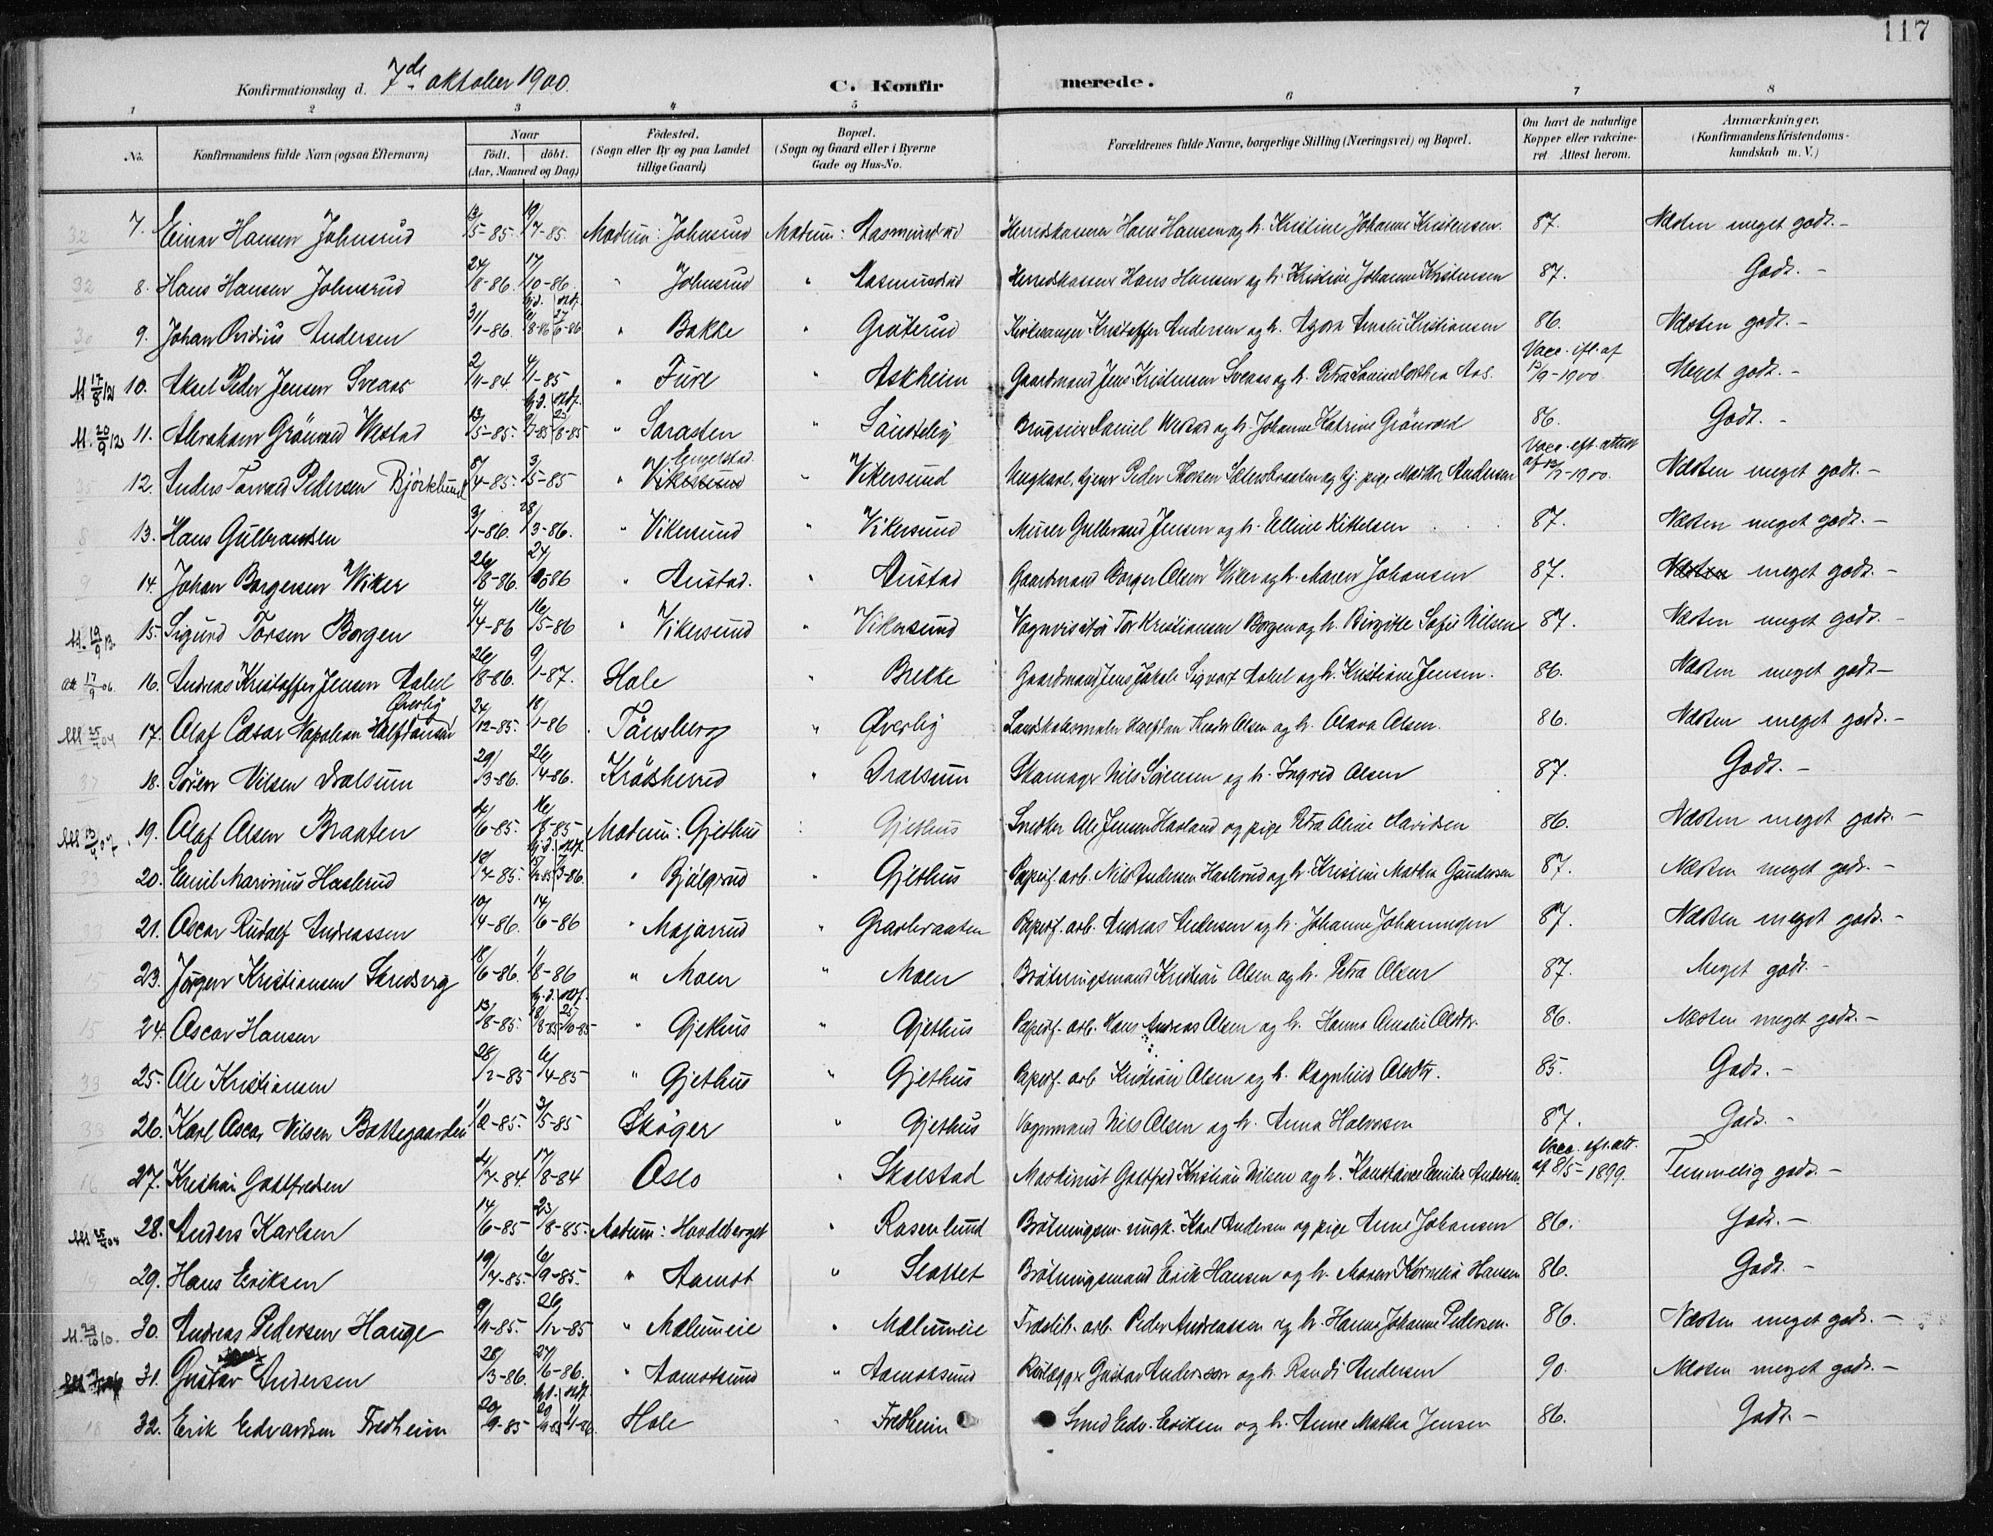 117
Konfirmationsdag d. 7de oktober 1900. C. Konfirmerede.
1 2 3 4 5 6 7 8
No. Konfirmandens fulde Navn (ogsaa Efternavn) Naar födt. döbt. (Aar, Maaned og Dag) Födested. (Sogn eller By og paa Landet tillige Gaard) Bopæl. (Sogn og Gaard eller i Byerne Gade og Hus-No. Forældrenes fulde Navne, borgerlige Stilling (Næringsvei) og Bopæl. Om havt de naturlige Kopper eller vakcineret Attest herom. Anmærkninger. (Konfirmandens Kristendomskundskab m. V.)
7. Einar Hansen Johnsrud 13/5-85. 19/7-85. Modum: Johnsrud Modum: Aasmundrud Herredskasserer Hans Hansen og h. Kristine Johanne Kristensen. 87. Næsten meget godt. -
8. Hans Hansen Johnsrud 24/8-86. 17/10-86. " Johnsrud " Aasmundrud Herredskasserer Hans Hansen og h. Kristine Johanne Kristensen 87. Godt. -
9. Johan Ovidius Andersen 31/1-86. " Bakke " Gröterud Kirkesanger Kristoffer Andersen og h. Amalie Kristiansen 86. Næsten godt. -
10. Aksel Peder Jensen Sveaas 2/11-84. 4/1-85 " Fure " Askheim Gaardmand Jens Kristensen Sveaas og h. Petra Aas. Vacc. ifl. af 13/9-1900. Meget godt. -
11. Abraham Grönvold Westad 13/5-85. " Sarasten " Söndeby Daniel Westad og h. Johanne Katrine Grönvold 86. Godt. -
12. Anders Torvald Pedersen Björklund 8/4-85. 3/5-85 " Vikersund Engelstad " Vikersund Ungkarl, tjener Peder og tj. pige Andersen Vacc. eft. attest Næsten meget godt. -
13. Hans Gulbrandsen 3/1-86. 28/3-86. " Vikersund " Vikersund Murer Gulbrand Jensen og h. Elline Kittelsen 87. Næsten meget godt. -
14. Johan Borgersen Wiker 26/8-86. " Austad. " Austad Gaardmand Borger Olsen Wiker og h. Maren Johansen 87. Næsten meget godt. -
15. Sigurd Torsen Borgen 4/4-86 16/5-86 " Vikersund " Vikersund Vognvisitör Tor Kristiansen Borgen og h. Birgitte Sofie Nilsen 87. Næsten meget godt. -
16. Andreas Kristoffer Jensen Aabel 26/8-86. 9/1-87. Hole " Brekke Gaardmand Jens Jakob Sigvart Aabel og h. Kristiane Jensen. 86. Næsten meget godt -
17. Olaf Cæsar Napoleon Halfdansen Øverby 24/12-85. 18/1-86 Tönsberg " Øverby Landskabsmaler Halfdan Olsen og h. Olava Olsen. 86. Næsten meget godt. -
18. Sören Nilsen Dralsum 29/3-86. 26/4-86. Krödsherred " Dralsum Skomager Nils Sörensen og h. Ingrid Olsen 87. Godt. -
19. Olaf Olsen Braaten 4/6-85. 16/8-85 Modum: Gjethus : Gjethus Snedker Ole Jensen Havland og pige Petra Oline Davidsen 86. Næsten meget godt. -
20. Emil Marinius Haslerud 18/7-85. " Bjölgerud " Gjethus Papirf. arb. Nils Andersen Haslerud og h. Kristine Mathea Gundersen 87. Næsten meget godt. -
21. Oscar Rudolf Andreassen 10/4-86. 14/6-86 " Majorrud " Graabraaten Papirf. arb. Andreas Andersen og h. Johanne Johannesen 87. Næsten meget godt. -
23. Jörgen Kristiansen 18/6-86. 1/8-86 " Moen " Moen Brötningsmand Kristian Olsen og h. Petra Olsen 87. Meget godt. -
24. Oscar Hansen 13/8-85. " Gjethus " Gjethus Papirf. arb. Hans Andreas Olsen og h. Hanna Amalie Olsdtr. 86. Næsten meget godt. -
25. Ole Kristiansen 28/2-85 6/4-85 " Gjethus " Gjethus Papirf. arb. Kristian Olsen og h. Ragnhild Olsdtr. 85. Godt. -
26. Karl Oscar Nilsen Bottegaarden 1/2-85. 3/5-85 Skoger " Gjethus Vognmand Nils Olsen og h. Anna Halvorsen 87. Godt. -
27. Kristian Gottfredsen 4/7-84. 17/8-84 Oslo " Skalstad Maskinist Gottfred Kristian Nilsen og h. Konstance Emilie Andersen. Vacc. eft. att. af 8/5-1899. Temmelig godt. -
28. Anders Karlsen 14/6-85 23/8-85. Modum: Hovdeberget " Rosenlund Brötningsm. ungk. Karl Andersen og pige Anne Johansen 86. Godt. -
29. Hans Eriksen 19/7-85. 6/9-85. " Aamot " Slottet Brötningsmand Erik Hansen og h. Maren Kornelia Hansen 86. Godt. -
30. Andreas Pedersen Hauge 9/11-85. 26/12-85 " Malumeie " Malumeie Træslib. arb. Peder Andreassen og h. Hanna Johanne Pedersen. 86. Næsten meget godt. -
31. Gustav Andersen 28/3-86. 27/6-86. " Aamotsund " Aamotsund Gustav Andersson og h. Randi Andersen 90. Næsten meget godt. -
32. Erik Edvardsen Fredheim 20/9-85 Hole " Fredheim Smed Edv. Eriksen og h. Anne Mathea Jensen 86. Godt. -